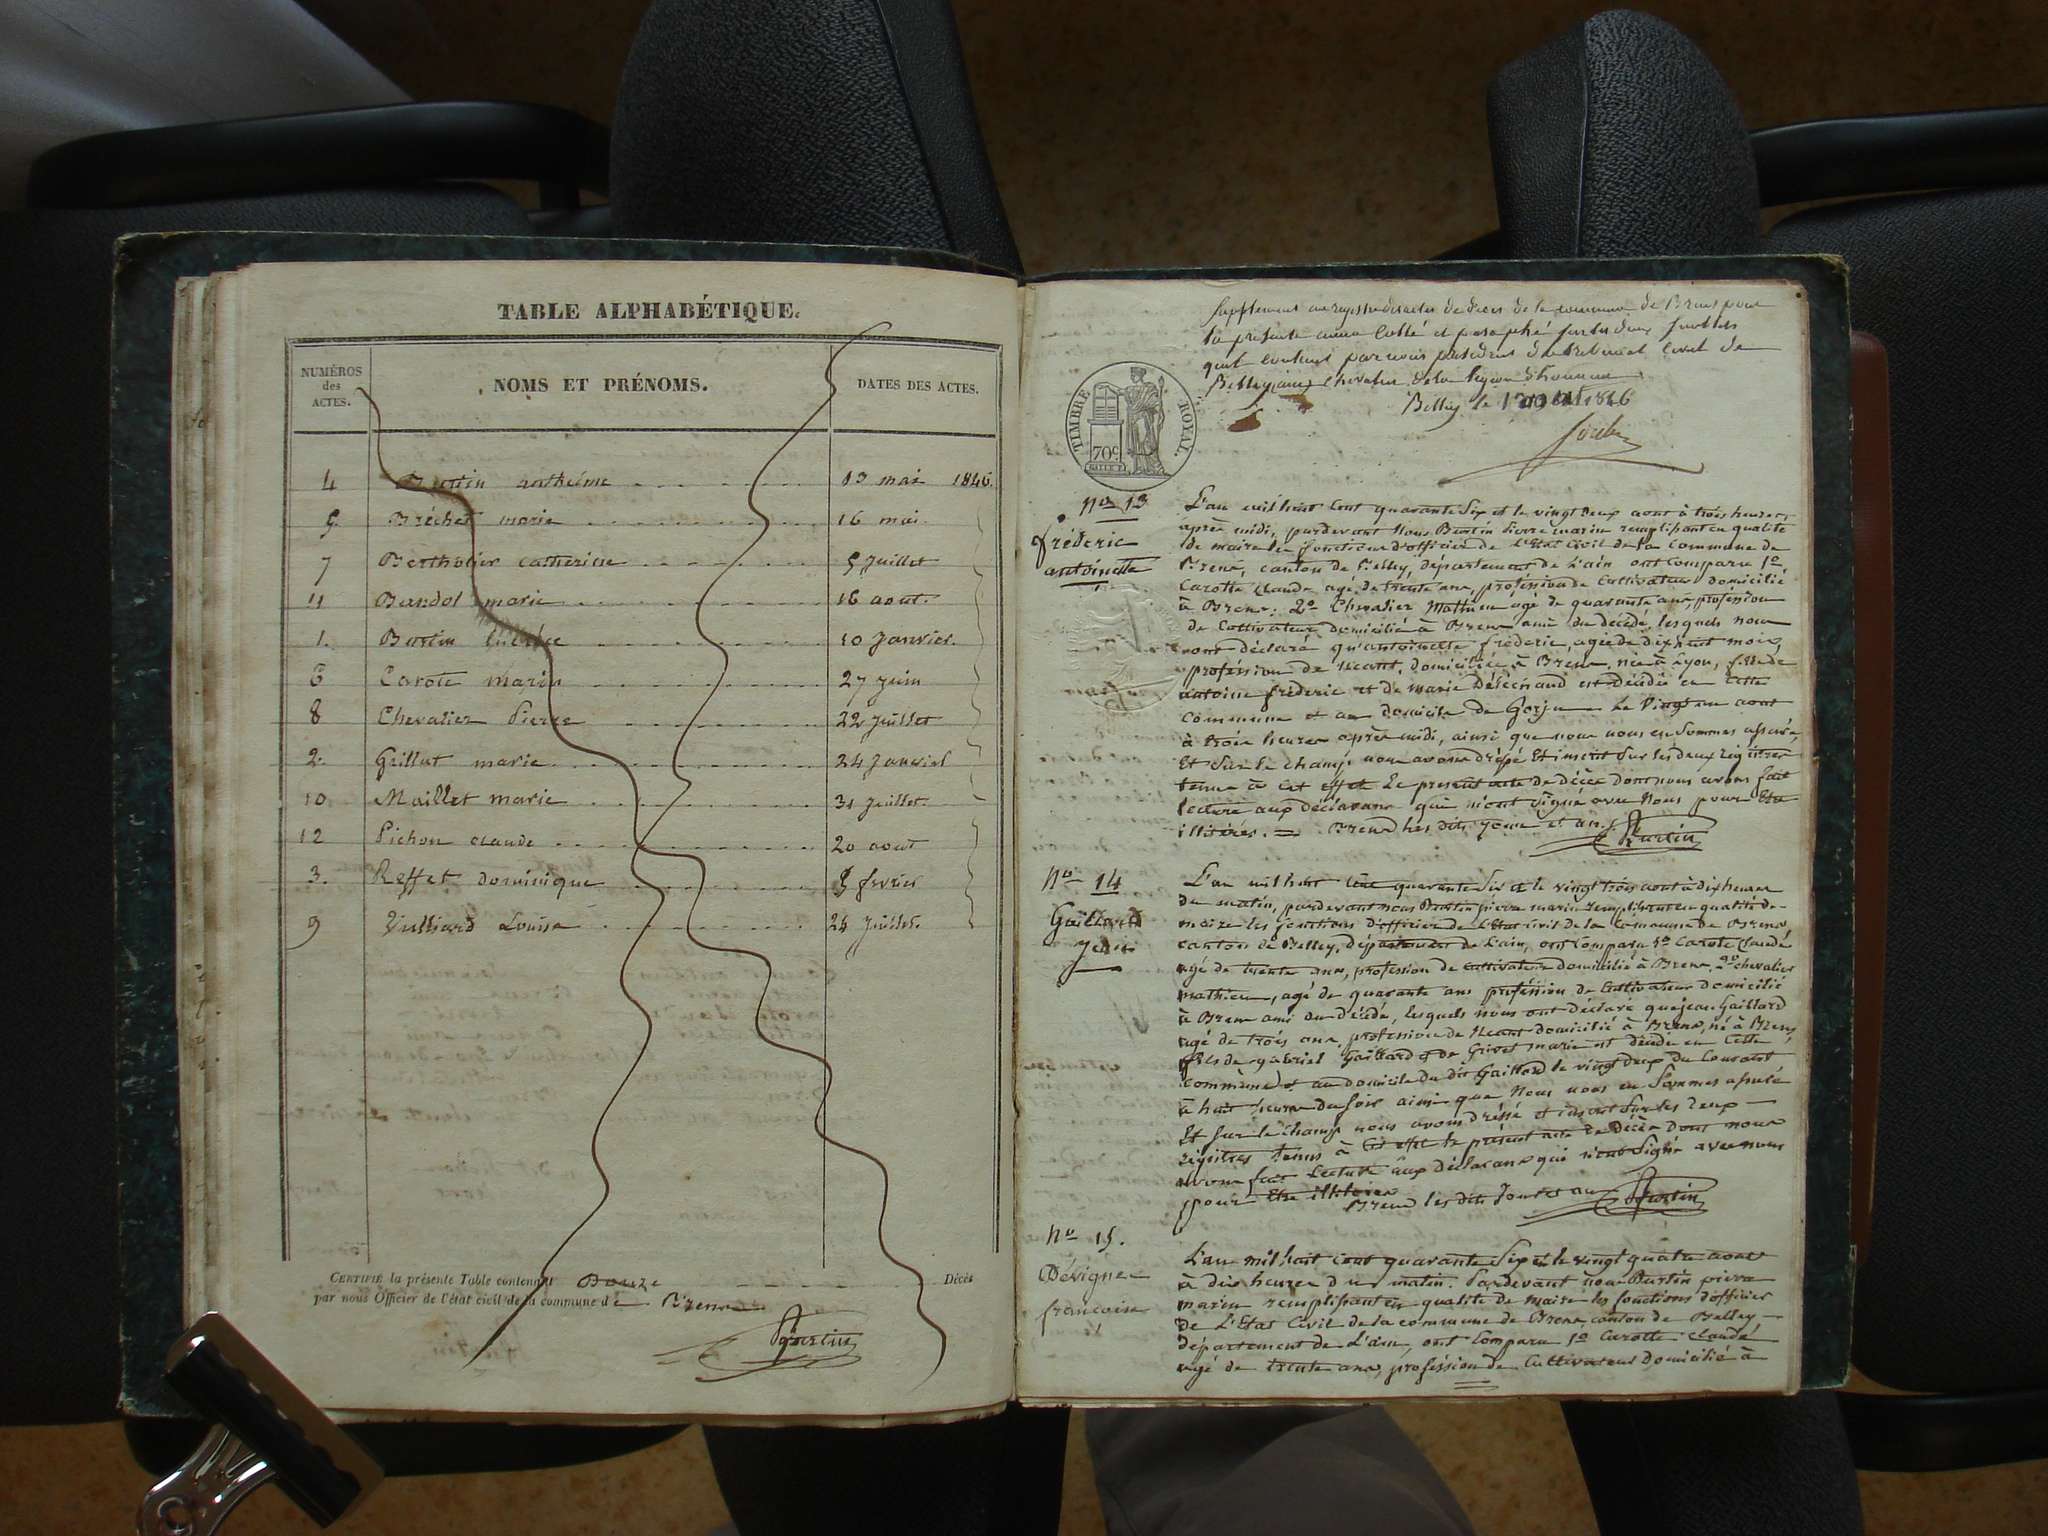 TABLE ALPHABÉTIQUE.
NUMÉROS des ACTES.
NOMS ET PRÉNOMS.
DATES DES ACTES.
4 Burtin anthelme 13 mai 1846.
5 Bréchet marie 16 mai
7 Bertholier catherine 5 juillet
11 Bandol marie 16 aout.
1. Burtin 10 janvier.
6 Carotte marie 27 juin
8 Chevalier Pierre 22 juillet
2. Grillut marie 24 janvier
10 Maillet marie 31 juillet.
12 Pichon claude 20 aout
3. Reffet dominique 5 fevrier
9 Vulliard Louise 24 juillet.
CERTIFIÉ la présente Table contenant Douze Décès
par nous Officier de l'état civil de la commune de Brens
Burtin
Supplement au registre des actes de décès de la commune de Brens pour
la présente année Cotté et paraphé sur les deux feuillets
qu'il contient par nous président du tribunal Civil de
Belley, Chevalier de la Légion d'honneur
Belley le 1846
TIMBRE ROYAL.
70c
No 13
fréderic
antoinette
L'an mil huit cent quarante Six et le vingt deux aout à trois heures
après midi, pardevant Nous Burtin Pierre marin remplissant en qualité
de maire les fonctions d'officier de L'Etat Civil de la Commune de
Brens, canton de Belley, département de L'ain ont Comparu 1o
Carotte Claude agé de trente ans, profession de Cultivateur domicilié
à Brens; 2o Chevalier Mathieu agé de quarante ans, profession
de Cultivateur domicilié à Brens ami du décédé, lesquels nous
ont déclaré qu'antoinette fréderic, agée de dix huit mois,
profession de Néant, domiciliée à Brens, née à Lyon, fille de
antoine fréderic et de marie est décédée en cette
commune et au domicile de Gorju le Vingt un aout
à trois heures après midi, ainsi que nous nous en Sommes assuré,
Et Sur le champ nous avons dressé Et inscrit Sur les deux registres
tenus à cet effet le présent acte de décès dont nous avons fait
lecture aux déclarans qui n'ont Signé avec Nous pour Etre
illitérés. = Brens les dits jour et an. Burtin
No 14
Gaillard
Jean
L'an mil huit cent quarante Six et le vingt trois aout à dix heures
du matin, pardevant nous Burtin pierre marin remplissant en qualité de
maire les fonctions d'officier de L'Etat Civil de la Commune de Brens,
canton de Belley, département de L'ain, ont Comparu 1o Carotte Claude
agé de trente ans, profession de Cultivateur domicilié à Brens, 2o chevalier
mathieu, agé de quarante ans profession de Cultivateur domicilié
à Brens ami du décédé, lesquels nous ont déclaré que jean Gaillard
agé de trois ans, profession de Néant domicilié à Brens, né à Brens
fils de gabriel Gaillard et de Grivet marie est décédé en Cette
Commune et au domicile du dit Gaillard le vingt deux du Courant
à huit heures du soir ainsi que Nous nous en Sommes assuré
Et Sur le champ nous avons dressé et inscrit Sur les deux
régistres tenus à Cet effet le présent acte de décès dont nous
avons fait Lecture aux déclarans qui n'ont Signé avec nous
pour Etre illitérés
Brens les dits Jour et an Burtin
No 15.
Dévigne
francoise
L'an mil huit cent quarante Six et le vingt quatre aout
à dix heures du matin. Pardevant nous Burtin pierre
marin remplissant en qualité de maire les fonctions d'officier
de L'Etat Civil de la commune de Brens canton de Belley
département de L'ain, ont Comparu 1o Carotte claude
agé de trente ans, profession de Cultivateur domicilié à